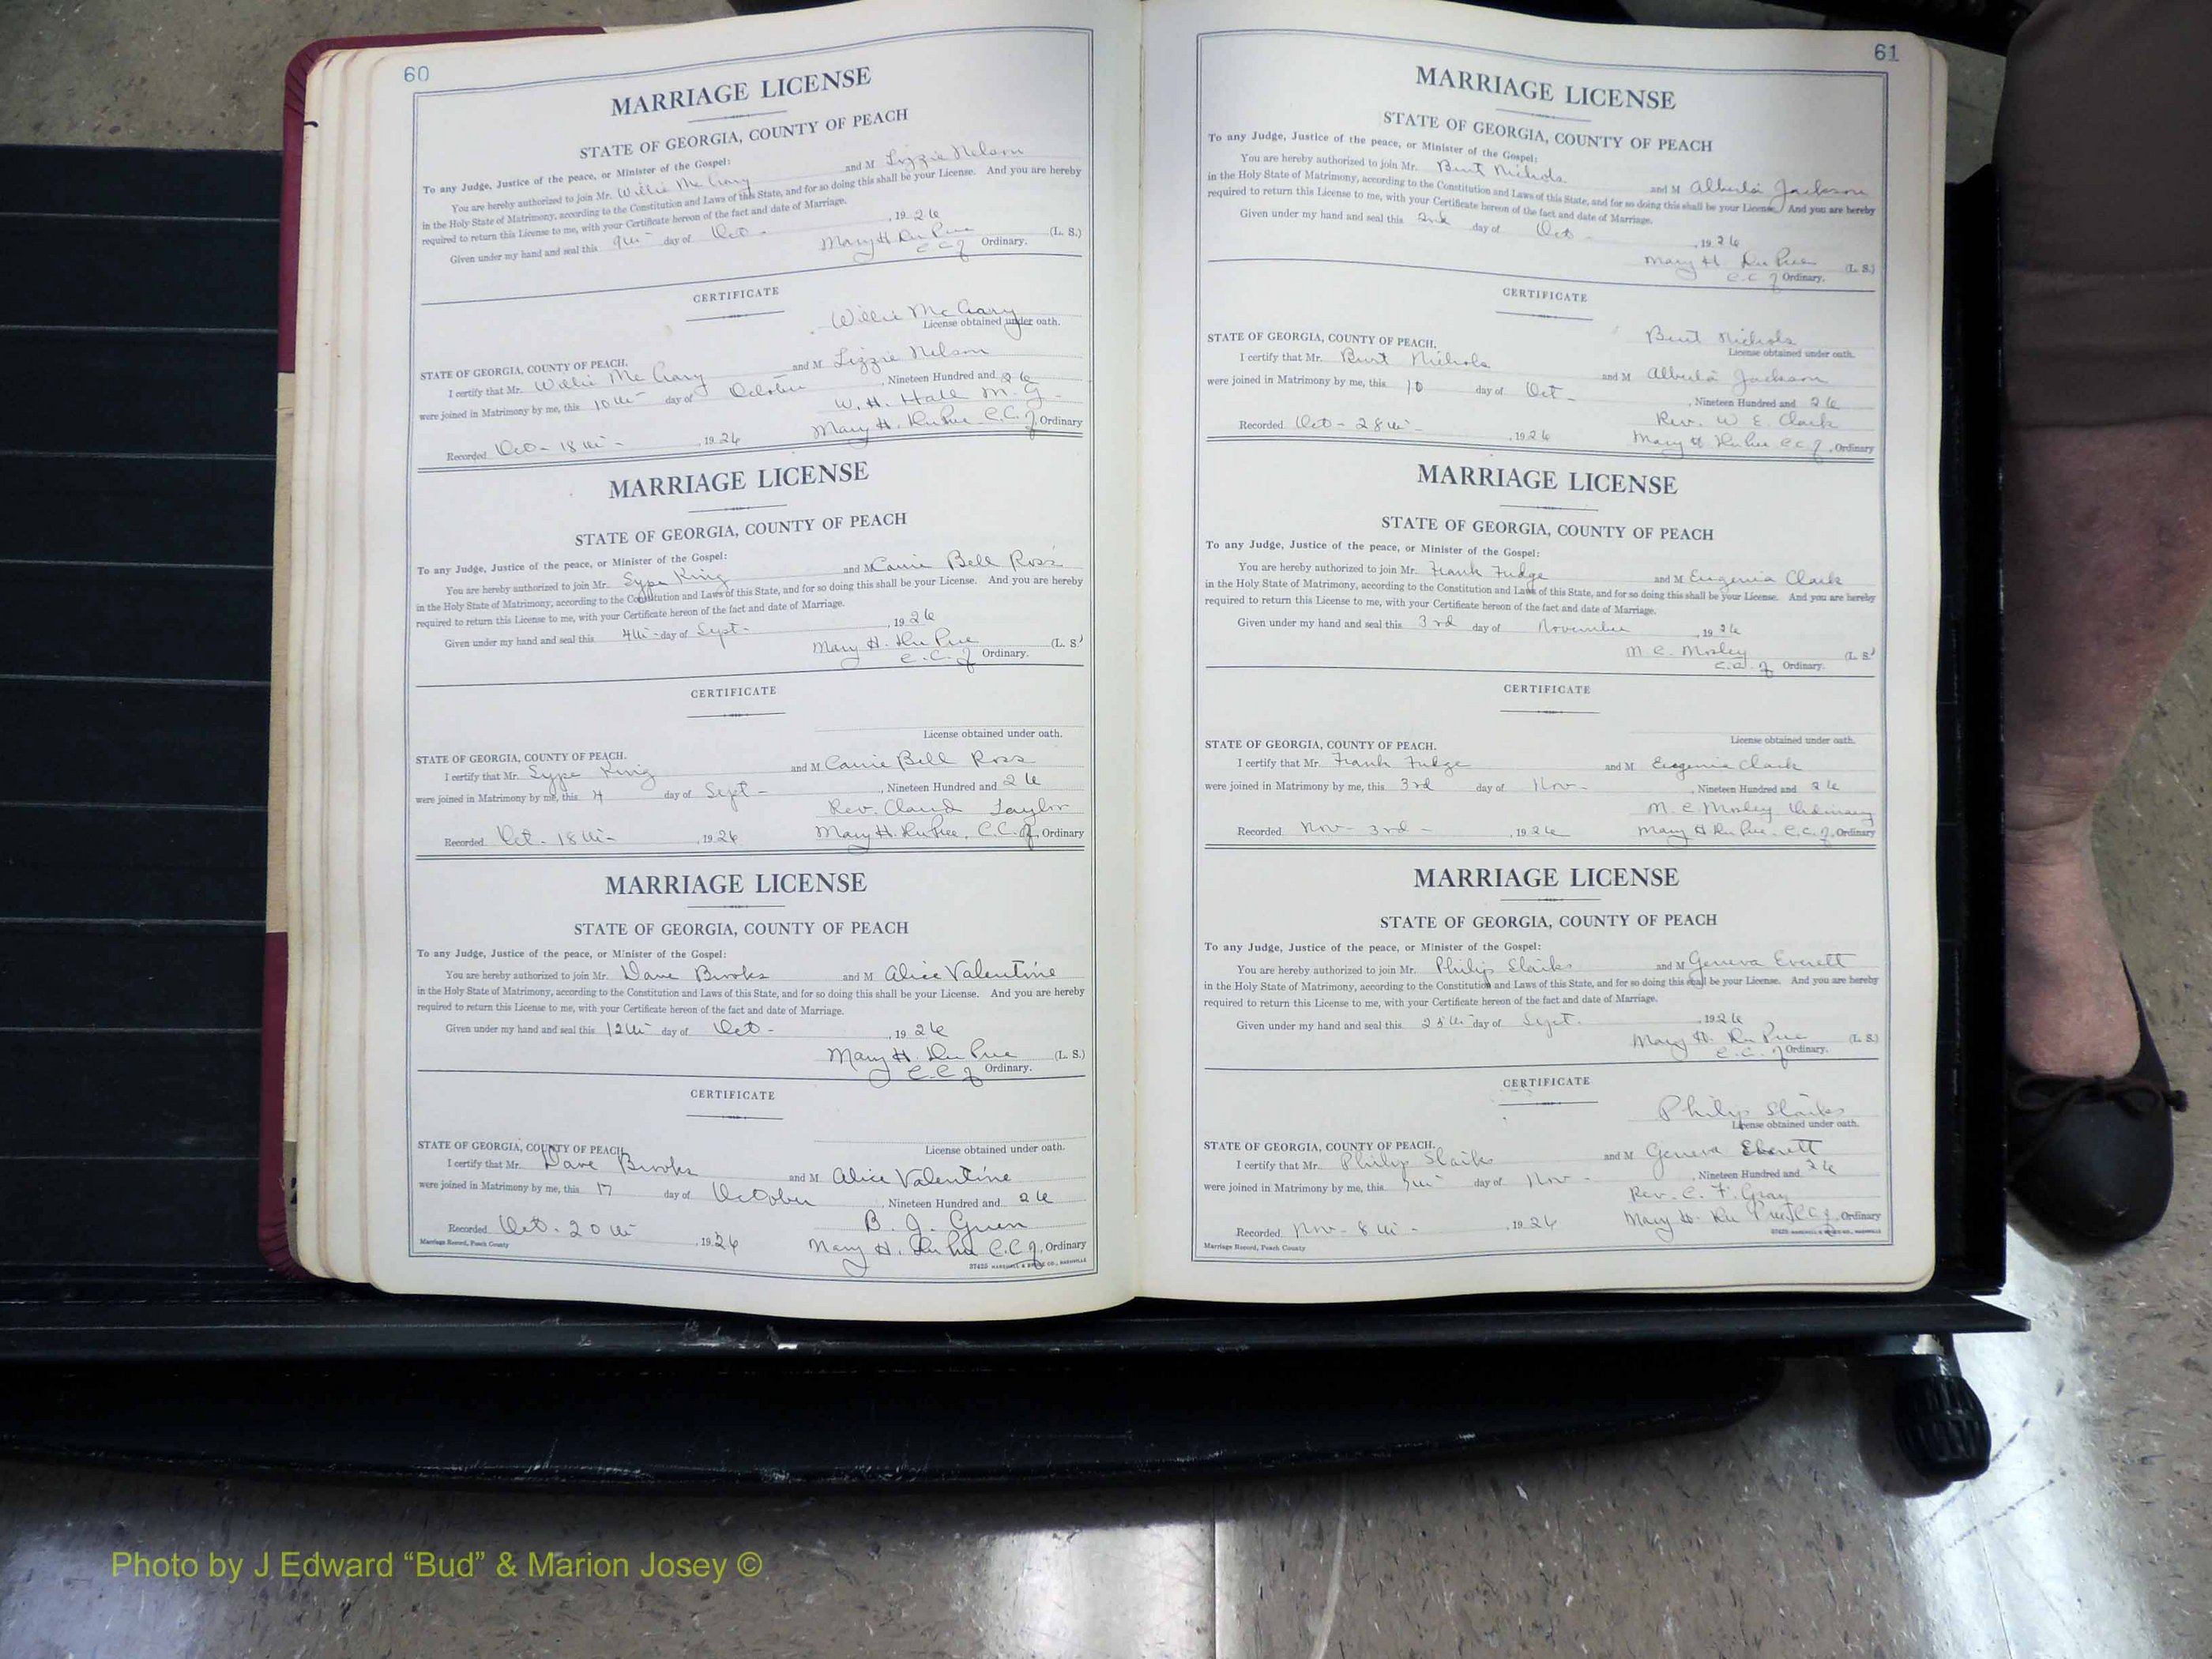 60
MARRIAGE LICENSE
STATE OF GEORGIA, COUNTY OF PEACH
To any Judge, Justice of the peace, or Minister of the Gospel:
You are hereby authorized to join Mr. Willie McCrary and M Lizzie Nelson
in the Holy State of Matrimony, according to the Constitution and Laws of this State, and for so doing this shall be your License. And you are hereby
required to return this License to me, with your Certificate hereon of the fact and date of Marriage.
Given under my hand and seal this 9th day of Oct - , 1926
Mary H. DuPree (L. S.)
C C O Ordinary.
CERTIFICATE
Willie McCrary
License obtained under oath.
STATE OF GEORGIA, COUNTY OF PEACH.
I certify that Mr. Willie McCrary and M Lizzie Nelson
were joined in Matrimony by me, this 10th day of October , Nineteen Hundred and 26
W. H. Hall M. G.
Recorded Oct - 18th - , 1926 Mary H. DuPree C.C.O, Ordinary
MARRIAGE LICENSE
STATE OF GEORGIA, COUNTY OF PEACH
To any Judge, Justice of the peace, or Minister of the Gospel:
You are hereby authorized to join Mr. Sype King and M Carrie Bell Ross
in the Holy State of Matrimony, according to the Constitution and Laws of this State, and for so doing this shall be your License. And you are hereby
required to return this License to me, with your Certificate hereon of the fact and date of Marriage.
Given under my hand and seal this 4th - day of Sept - , 1926
Mary H. DuPree (L. S.)
C.C.O Ordinary.
CERTIFICATE
License obtained under oath.
STATE OF GEORGIA, COUNTY OF PEACH.
I certify that Mr. Sype King and M Carrie Bell Ross
were joined in Matrimony by me, this 4 day of Sept - , Nineteen Hundred and 26
Rev. Claud Taylor
Recorded Oct - 18th - , 1926 Mary H. DuPree, C.C.O, Ordinary
MARRIAGE LICENSE
STATE OF GEORGIA, COUNTY OF PEACH
To any Judge, Justice of the peace, or Minister of the Gospel:
You are hereby authorized to join Mr. Dave Brooks and M Alice Valentine
in the Holy State of Matrimony, according to the Constitution and Laws of this State, and for so doing this shall be your License. And you are hereby
required to return this License to me, with your Certificate hereon of the fact and date of Marriage.
Given under my hand and seal this 12th - day of Oct - , 1926
Mary H. DuPree (L. S.)
C.C O Ordinary.
CERTIFICATE
License obtained under oath.
STATE OF GEORGIA, COUNTY OF PEACH.
I certify that Mr. Dave Brooks and M Alice Valentine
were joined in Matrimony by me, this 17 day of October , Nineteen Hundred and 26
B. J. Green
Recorded Oct - 20th , 1926 Mary H. DuPree C.C O, Ordinary
Marriage Record, Peach County 37425 MARSHALL & BRUCE CO., NASHVILLE
61
MARRIAGE LICENSE
STATE OF GEORGIA, COUNTY OF PEACH
To any Judge, Justice of the peace, or Minister of the Gospel:
You are hereby authorized to join Mr. Burt Nichols and M Alberta Jackson
in the Holy State of Matrimony, according to the Constitution and Laws of this State, and for so doing this shall be your License. And you are hereby
required to return this License to me, with your Certificate hereon of the fact and date of Marriage.
Given under my hand and seal this 2nd day of Oct - , 1926
Mary H. DuPree (L. S.)
C.C O Ordinary.
CERTIFICATE
Burt Nichols
License obtained under oath.
STATE OF GEORGIA, COUNTY OF PEACH.
I certify that Mr. Burt Nichols and M Alberta Jackson
were joined in Matrimony by me, this 10 day of Oct - , Nineteen Hundred and 26
Rev. W E. Clark
Recorded Oct - 28th - , 1926 Mary H DuPree C.C. O, Ordinary
MARRIAGE LICENSE
STATE OF GEORGIA, COUNTY OF PEACH
To any Judge, Justice of the peace, or Minister of the Gospel:
You are hereby authorized to join Mr. Frank Fudge and M Eugenia Clark
in the Holy State of Matrimony, according to the Constitution and Laws of this State, and for so doing this shall be your License. And you are hereby
required to return this License to me, with your Certificate hereon of the fact and date of Marriage.
Given under my hand and seal this 3rd day of November , 1926
M. C. Mosley (L. S.)
Ordinary.
CERTIFICATE
License obtained under oath.
STATE OF GEORGIA, COUNTY OF PEACH.
I certify that Mr. Frank Fudge and M Eugenia Clark
were joined in Matrimony by me, this 3rd day of Nov - , Nineteen Hundred and 26
M. C Mosley Ordinary
Recorded Nov - 3rd - , 1926 Mary H DuPree, C.C. O, Ordinary
MARRIAGE LICENSE
STATE OF GEORGIA, COUNTY OF PEACH
To any Judge, Justice of the peace, or Minister of the Gospel:
You are hereby authorized to join Mr. Philip Slaiks and M Geneva Everett
in the Holy State of Matrimony, according to the Constitution and Laws of this State, and for so doing this shall be your License. And you are hereby
required to return this License to me, with your Certificate hereon of the fact and date of Marriage.
Given under my hand and seal this 25th - day of Sept. , 1926
Mary H. DuPree (L. S.)
C.C. O Ordinary.
CERTIFICATE
Philip Slaiks
License obtained under oath.
STATE OF GEORGIA, COUNTY OF PEACH.
I certify that Mr. Philip Slaiks and M Geneva Everett
were joined in Matrimony by me, this day of Nov - , Nineteen Hundred and 26
Rev. C. F. Gray
Recorded Nov - 8th - , 1926 Mary H. DuPree C C O, Ordinary
Marriage Record, Peach County 37425 MARSHALL & BRUCE CO., NASHVILLE
Photo by J Edward “Bud” & Marion Josey ©